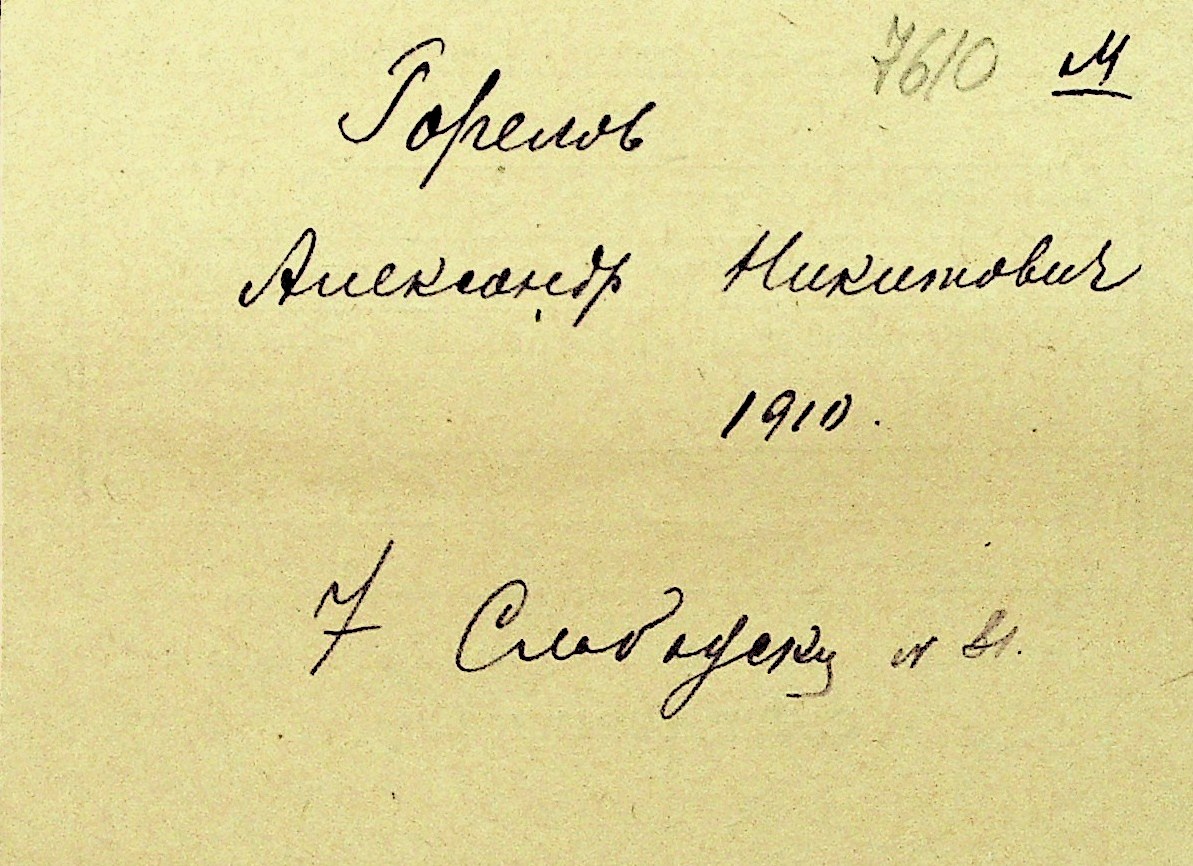 7610 М
Горелов
Александр Никитович
1910.
7 Слободск